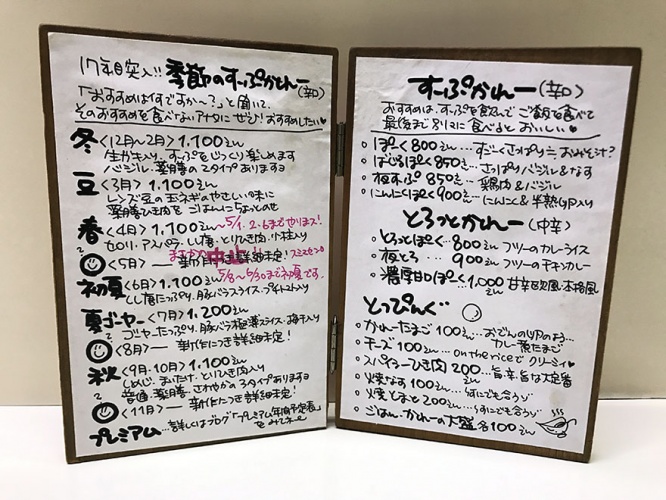 17年目突入!! 季節のすーぷかれー(辛口)
「おすすめは何ですか〜?」と聞いて、
そのおすすめを食べないアナタにぜひ!おすすめしたい♥
冬 <12月〜2月> 1,100えん
生かき入り。すーぷをじっくり楽しめます
バジル、薬膳の2タイプあります
豆 <3月> 1,100えん
レンズ豆の玉ネギのやさしい味に
薬膳ひき肉をごはんにちょいのせ
春 <4月> 1,100えん 5/1.2.6までやります!
セロリ、アスパラ、しし唐、とりひき肉、小柱入り
<5月> 中止!
初夏 <6月> 1,100えん 5/8〜6/30まで初夏です。
しし唐たっぷり、豚バラスライス、プチトマト入り
夏ゴーヤー <7月> 1,200えん
ゴーヤーたっぷり、豚バラ極薄スライス、梅干入り
<8月> 新作につき詳細未定!
秋 <9月・10月> 1,100えん
しめじ、まいたけ、とりひき肉入り
普通・薬膳、さわやかの2タイプあります
<11月> 新作につき詳細未定!
プレミアム…詳しくはブログ「プレミアム年間予定表」
をみてネ
すーぷかれー(辛口)
おすすめは、すーぷを飲んでご飯を食べて
最後まで別々に食べるとおいしい♥
ぽーく 800えん…すごくさっぱり≒おみそ汁?
ばじるぽーく 850えん…さっぱりバジル&なす
夜すーぷ 850えん…鶏肉&バジル
にんにくぽーく 900えん…にんにく&半熟卵入り
とろっとかれー(中辛)
とろっとぽーく…800えん フツーのカレーライス
夜とろ…900えん フツーのチキンカレー
濃厚甘口ぽーく 1,000えん 甘辛欧風・本格風
とっぴんぐ
かれーたまご 100えん…おでんの卵のよう…
カレー煮たまご
チーズ 100えん…on the riceで クリーミィ♥
スパイシーひき肉 200えん…旨辛、旨な大定番
火焼なす 100えん…うすにでも合うゾ
火焼とまと 200えん…うすにでも合うゾ
ごはん・かれーの大盛 各100えん